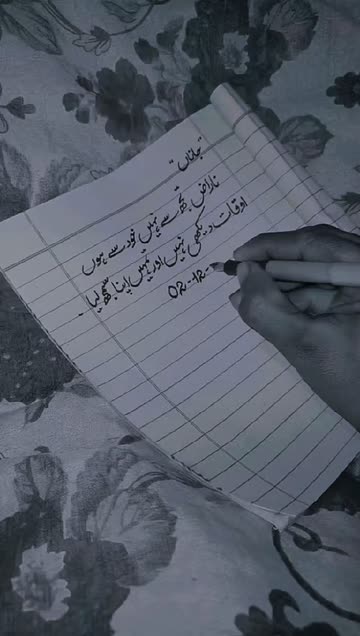 "جاناں"
ناراض تجھ سے نہیں خود سے ہوں
اوقات دیکھی نہیں اور تمہیں اپنا سمجھ لیا۔
02-12-